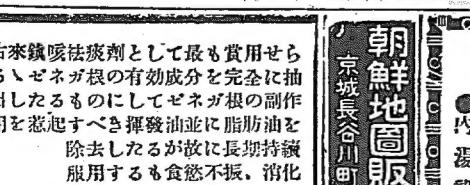 古來鎮咳祛痰劑として最も賞用せら
るゝゼネガ根の有効成分を完全に抽
出したるものにしてゼネガ根の副作
用を惹起すべき揮發油並に脂肪油を
除去したるが故に長期持續
服用するも食慾不振、消化
朝鮮地圖販
京城長谷川町